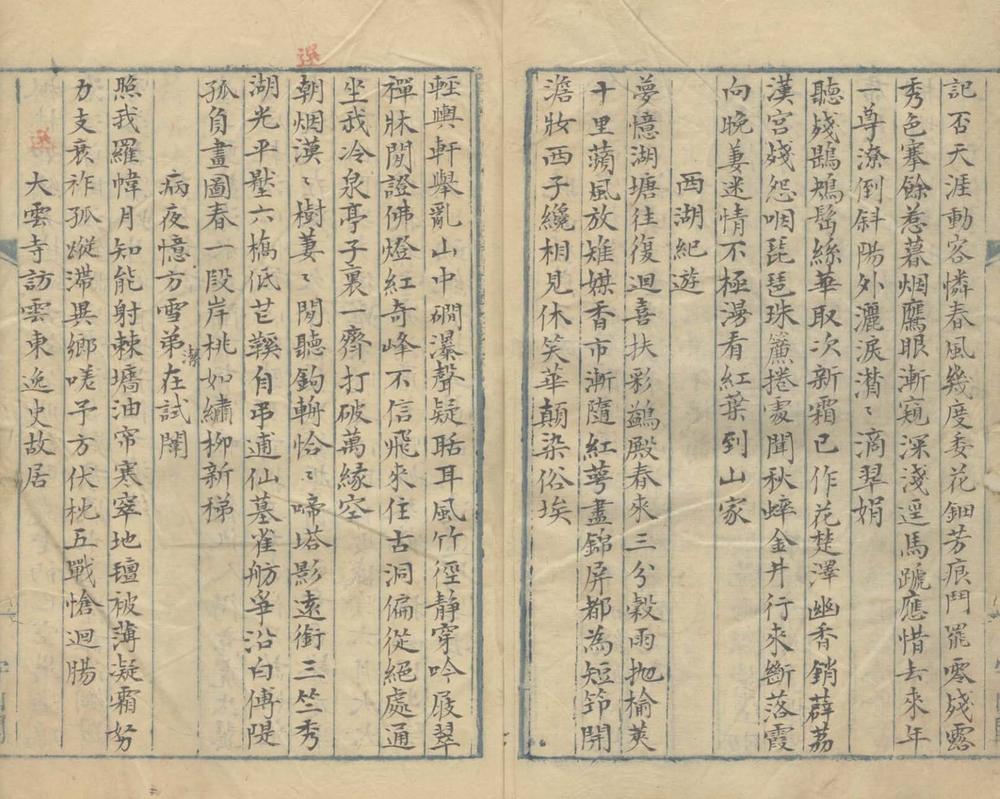 記否天涯動客憐春風幾度委花鈿芳痕鬥罷零殘露
秀色搴餘惹暮烟鷹眼漸窺深淺逕馬蹏應惜去來年
一尊潦倒斜陽外灑淚潸〻滴翠娟
聽殘鶗鴂髩絲華取次新霜已作花楚澤幽香銷薜荔
漢宮殘怨咽琵琶珠簾捲處聞秋蟀金井行來斷落霞
向晚萋迷情不極漫看紅葉到山家
西湖紀遊
夢憶湖塘往復迴喜扶彩鷁殿春來三分穀雨拋榆莢
十里蘋風放雉媒香市漸隨紅萼盡錦屏都為短節開
澹妝西子纔相見休笑華顛染俗埃
輕輿軒舉亂山中磵瀑聲疑聒耳風竹徑靜穿吟屐翠
禪牀閒證佛燈紅奇峰不信飛來住古洞偏從絕處通
坐我冷泉亭子裏一齊打破萬緣空
朝烟漠〻樹萋〻閒聽鉤輈恰〻啼塔影遠銜三竺秀
湖光平壓六橋低芒鞵自弔逋仙墓雀舫爭沿白傅隄
孤負畫圖春一段岸桃如繡柳新稊
病夜憶方雪弟潔在試闈
照我羅幃月知能射棘牆油帘寒窣地氊被薄凝霜努
力支衰祚孤蹤滯異鄉嗟予方伏枕五戰愴迴腸
大雲寺訪雲東逸史故居